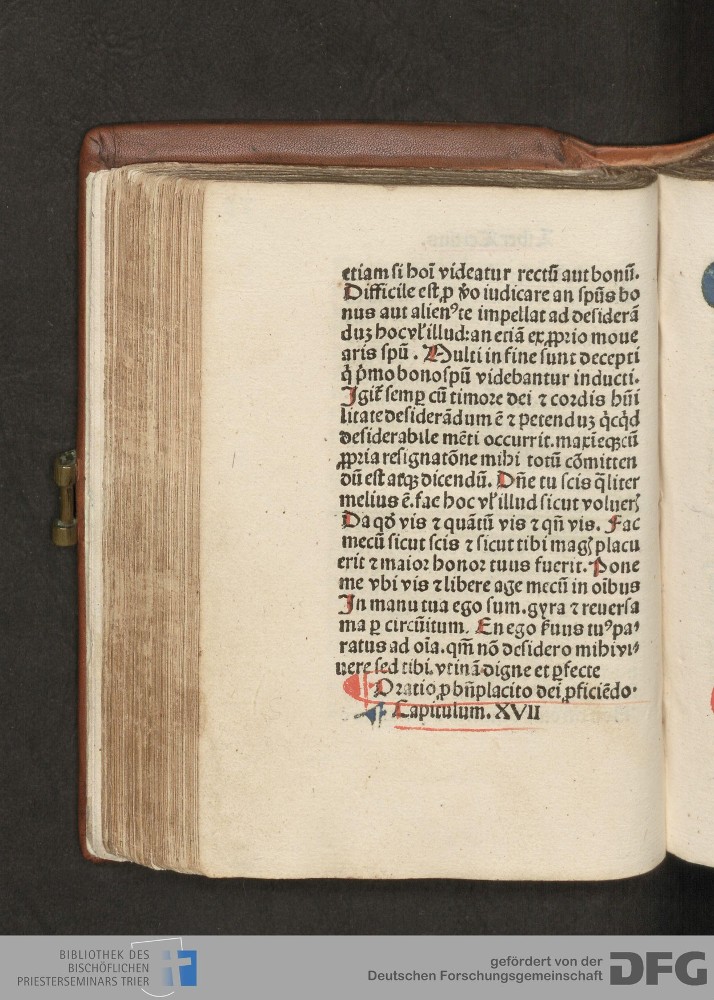 etiam si hoī videatur rectū aut bonū.
Difficile est ꝓ v̄o iudicare an spūs bo
nus aut alienꝰ te impellat ad desiderā
duꝫ hoc vl' illud: an etiā ex ꝓprio moue
aris spū. Multi in fine sunt decepti
q̄ p̄mo bono spū videbantur inducti.
Igit̄ semꝑ cū timore dei ⁊ cordis hūi
litate desiderādum ē ⁊ petenduꝫ q̇cq̇d
desiderabile mēti occurrit. maxīeqꝫ cū
ꝓpria resignatōne mihi totū cōmitten
dū est atqꝫ dicendū. Dn̄e tu scis q̄liter
melius ē. fac hoc vl' illud sicut voluerꝭ
Da qd̄ vis ⁊ quātū vis ⁊ qn̄ vis. Fac
mecū sicut scis ⁊ sicut tibi magꝭ placu
erit ⁊ maior honor tuus fuerit. Pone
me vbi vis ⁊ libere age mecū in oībus
In manu tua ego sum. gyra ⁊ reuersa
ma ꝑ circūitum. En ego ẜuus tuꝰ pa⸗
ratus ad oīa. qm̄ nō desidero mihi vi⸗
uere sed tibi. vtinā digne et ꝑfecte
¶ Oratio ꝓ bn̄placito dei ꝑficiēdo.
¶ Capitulum. XVII
BIBLIOTHEK DES
BISCHÖFLICHEN
PRIESTERSEMINARS TRIER
gefördert von der
Deutschen Forschungsgemeinschaft
DFG